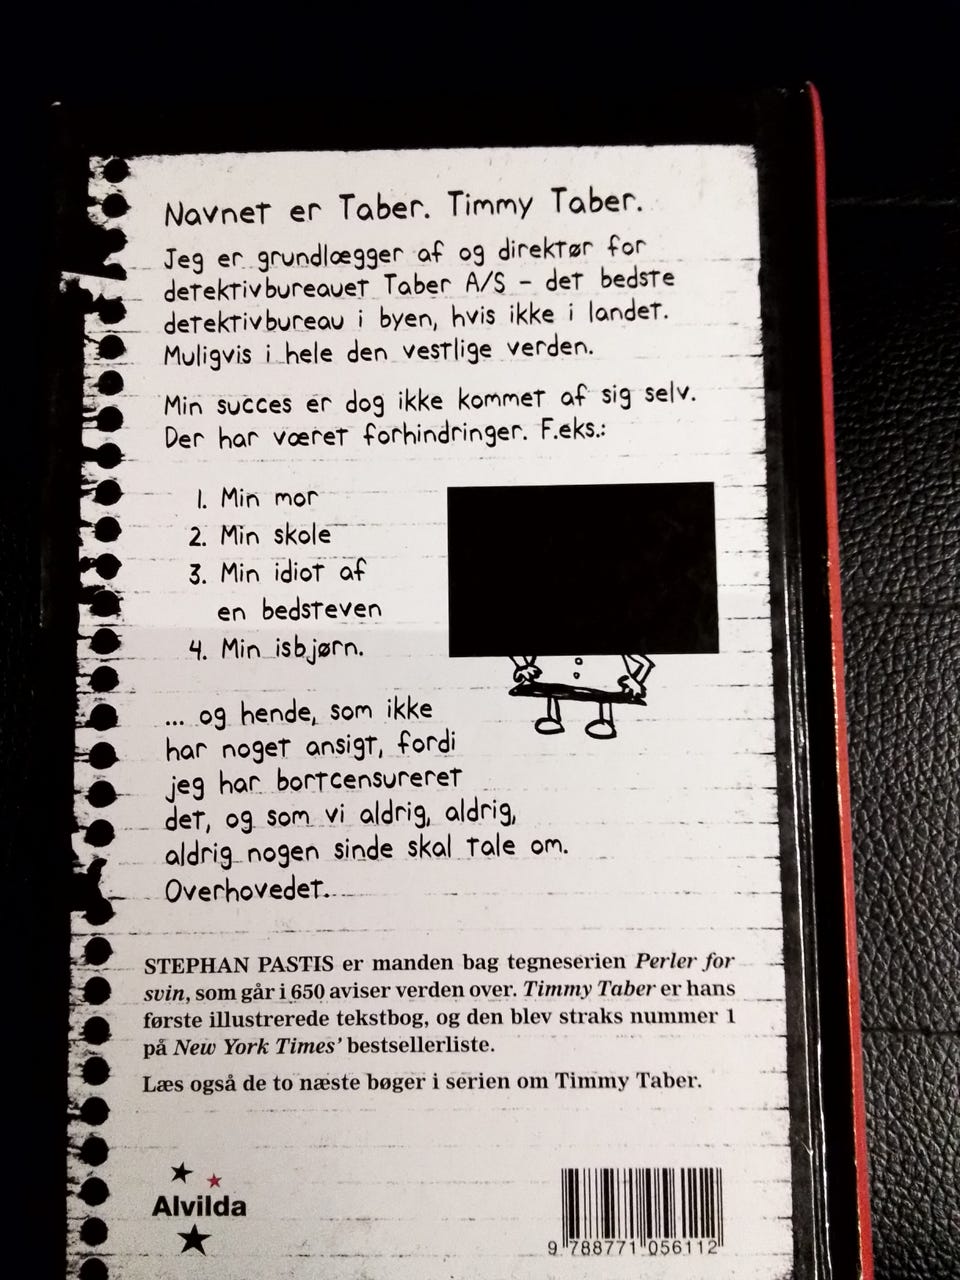 Navnet er Taber. Timmy Taber.
Jeg er grundlægger af og direktør for
detektivbureauet Taber A/S - det bedste
detektivbureau i byen, hvis ikke i landet.
Muligvis i hele den vestlige verden.
Min succes er dog ikke kommet af sig selv.
Der har været forhindringer. F.eks.:
1. Min mor
2. Min skole
3. Min idiot af
en bedsteven
4. Min isbjørn.
... og hende, som ikke
har noget ansigt, fordi
jeg har bortcensureret
det, og som vi aldrig, aldrig,
aldrig nogen sinde skal tale om.
Overhovedet.
STEPHAN PASTIS er manden bag tegneserien Perler for
svin, som går i 650 aviser verden over. Timmy Taber er hans
første illustrerede tekstbog, og den blev straks nummer 1
på New York Times' bestsellerliste.
Læs også de to næste bøger i serien om Timmy Taber.
Alvilda
9 788771 056112